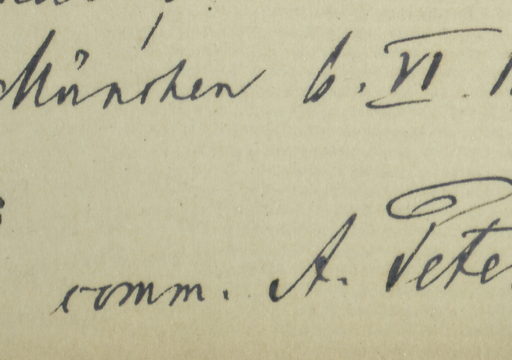 München 6. VI. 1
comm. A. Pete